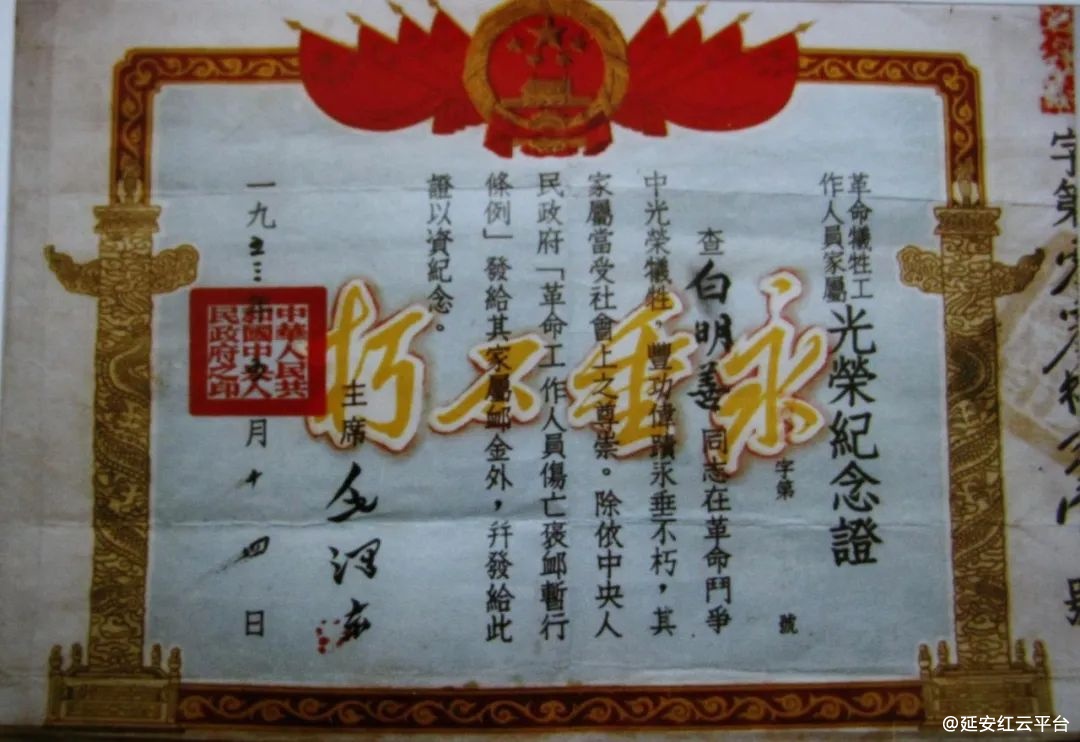 字第
號
革命犧牲工
作人員家屬
光榮紀念證
字第 號
查白明善同志在革命鬥爭
中光榮犧牲，豐功偉蹟永垂不朽，其
家屬當受社會上之尊崇。除依中央人
民政府「革命工作人員傷亡褒卹暫行
條例」發給其家屬卹金外，幷發給此
證以資紀念。
永垂不朽
主席 毛澤东
一九五三年 月十四日
中華人民共
和國中央人
民政府之印
@延安红云平台